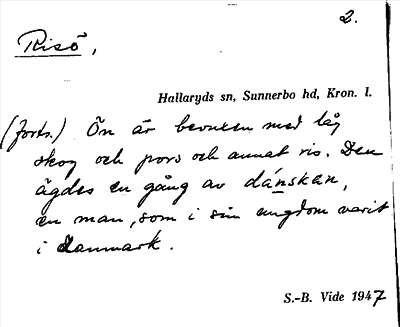 2.
Risö,
Hallaryds sn, Sunnerbo hd, Kron. l.
(forts.) Ön är bevuxen med låg
skog och pors och annat ris. Den
ägdes en gång av dánskan,
en man, som i sin ungdom varit
i Danmark.
S.-B. Vide 1947